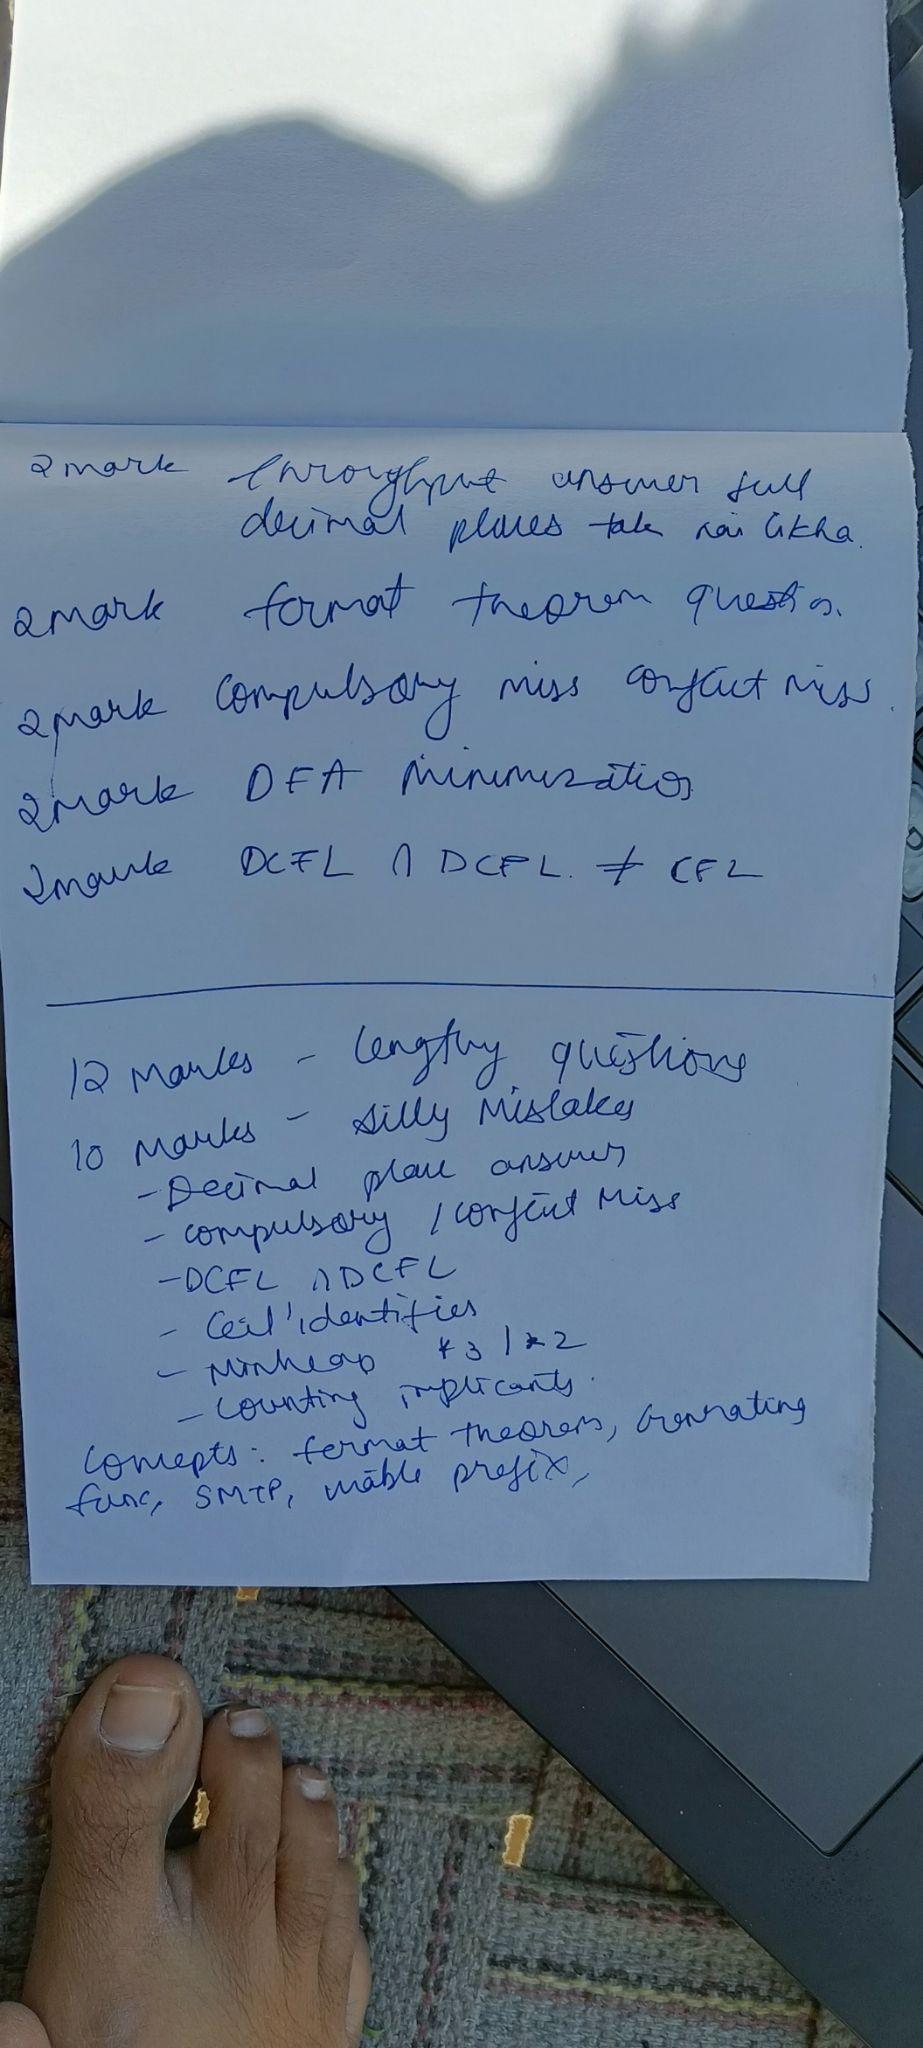 2 mark throughput answer full
decimal places tak nai likha.
2 mark format theorem question.
2 mark compulsory miss conflict miss.
2 mark DFA minimization
2 mark DCFL ∩ DCFL. ≠ CFL
12 Marks - lengthy questions
10 Marks - silly mistakes
- Decimal place answer
- compulsory / conflict Miss
- DCFL ∩ DCFL
- Ceil identifies
- Minheap *3 / *2
- Counting implicants.
Concepts: fermat theorem, Generating
func, SMTP, viable prefix,